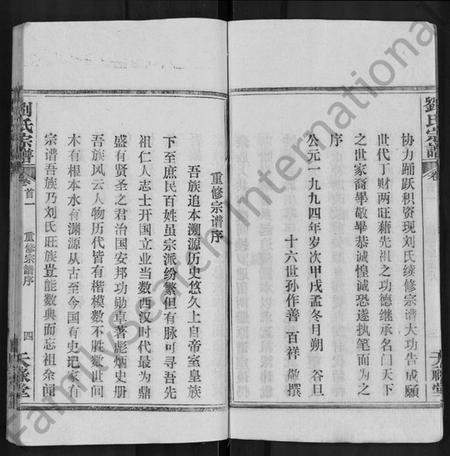 劉氏宗譜
卷
协力踊跃积资现刘氏续修宗谱大功告成愿
世代丁财两旺藉先祖之功德继承名门天下
之世家裔畢敬畢恭诚惶诚恐遂执笔而为之
序
公元一九九四年岁次甲戌孟冬月朔 谷旦
十六世孙作善 百祥 敬撰
重修宗谱序
吾族追本溯源历史悠久上自帝室皇族
下至庶民百姓虽宗派纷繁但有脉可寻吾先
祖仁人志士开国立业当数西汉时代最为鼎
盛有贤圣之君治国安邦功勋卓著彪炳史册
吾族风云人物历代皆有楷模数不胜数世间
木有根本水有渊源从古至今国有史记家有
宗谱吾族乃刘氏旺族豈能数典而忘祖余闻
刘氏宗谱
卷首一
重修宗谱序
四
天禄堂
FamilySearch International